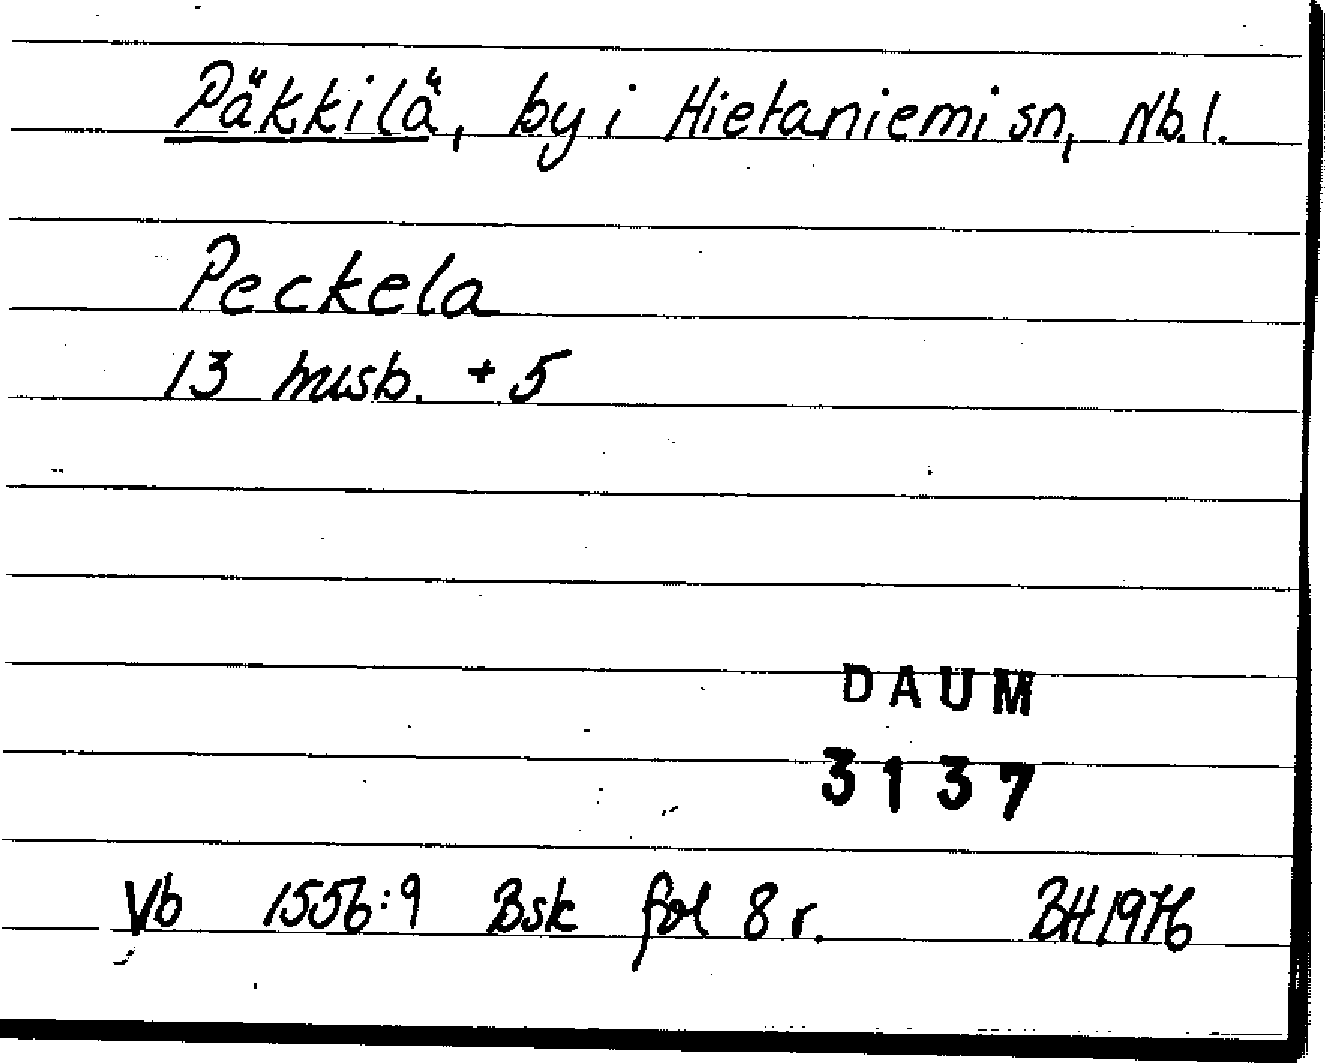 Päkkilä, by i Hietaniemi sn, Nb. l.
Peckela
13 husb. + 5
DAUM
3137
Vb 1556:9 Bsk fol 8 r. BH 1976